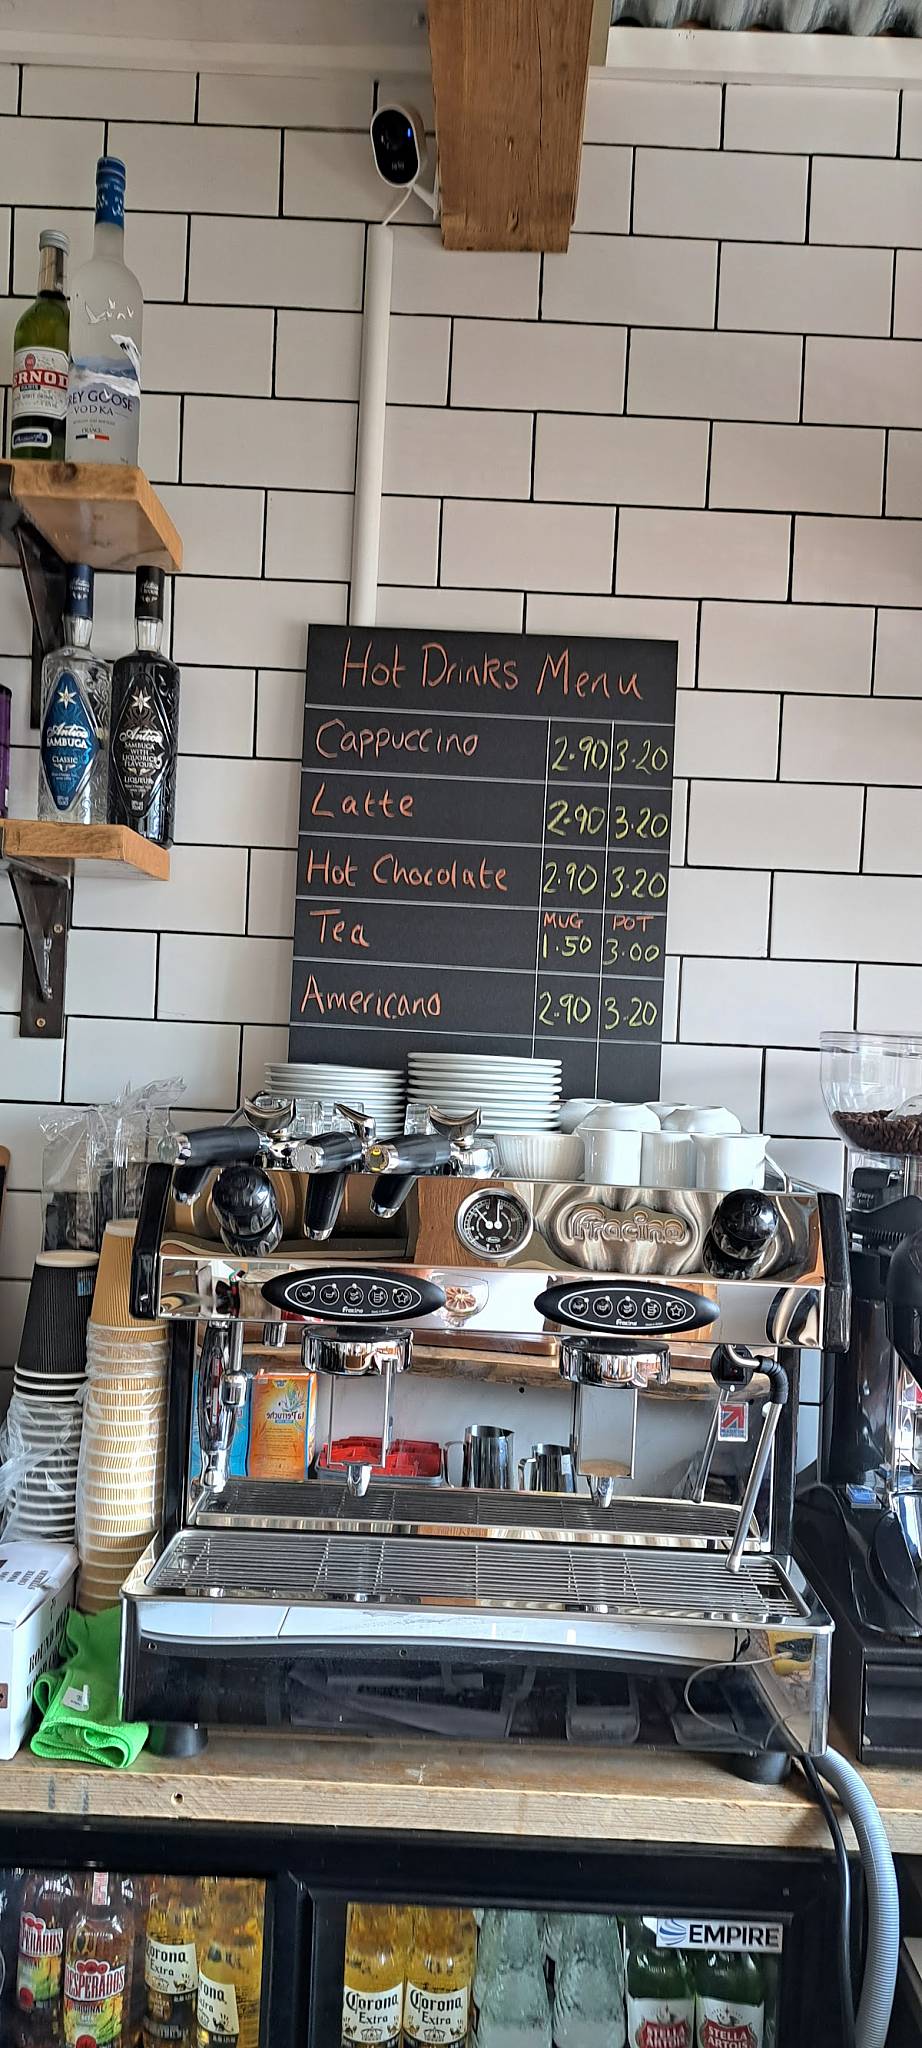 GREY GOOSE
VODKA
FRANCE
Antica
SAMBUCA
CLASSIC
Antica
SAMBUCA
WITH
LIQUORICE
FLAVOUR
LIQUEUR
Hot Drinks Menu
Cappuccino 2.90 3.20
Latte 2.90 3.20
Hot Chocolate 2.90 3.20
Tea MUG 1.50 POT 3.00
Americano 2.90 3.20
Fracino
Fracino
Fracino
la Perruche
EMPIRE
DESPERADOS
ORIGINAL
Corona
Extra
Corona
Extra
Corona
Extra
Corona
Extra
STELLA
ARTOIS
STELLA
ARTOIS